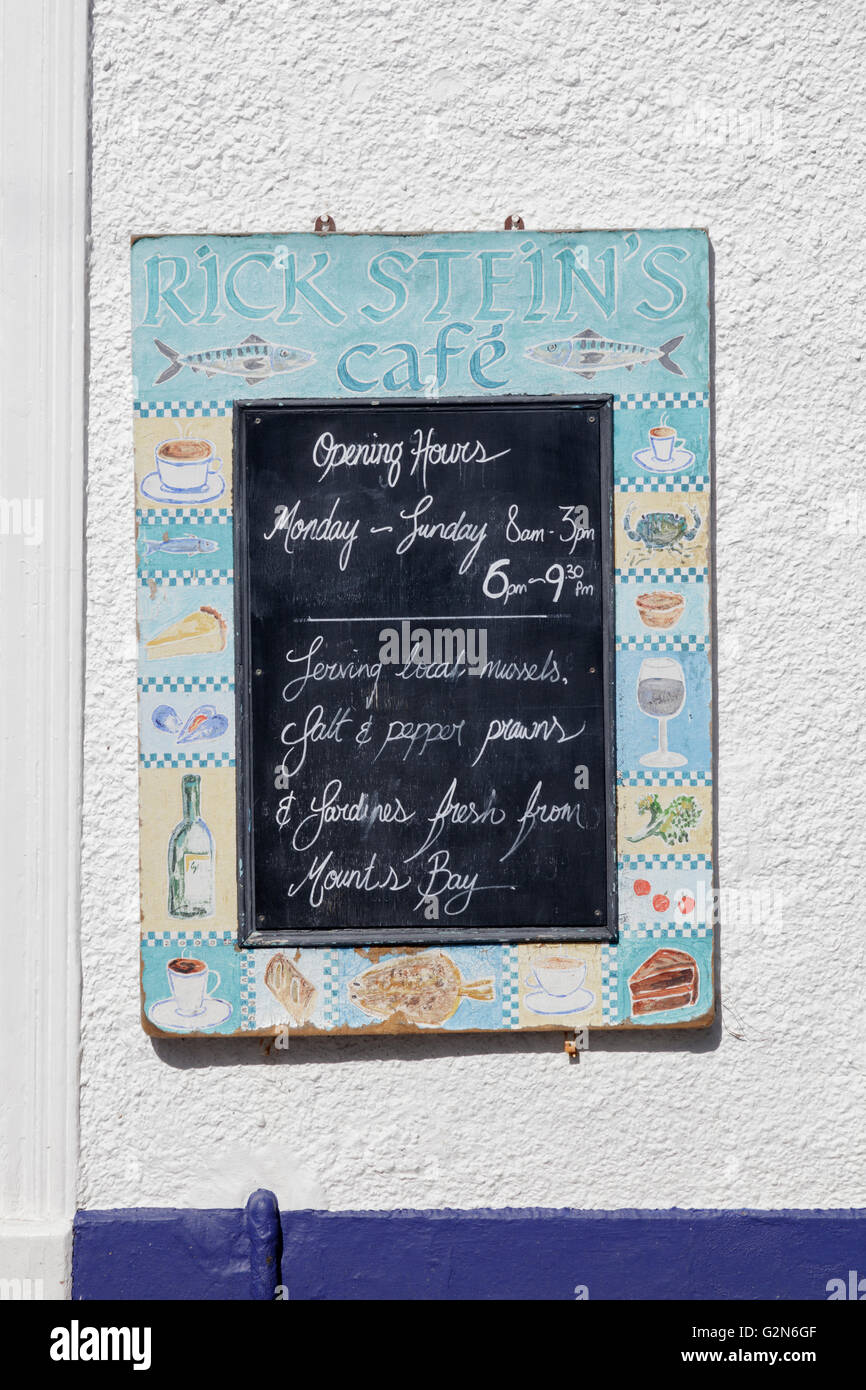 RICK STEIN'S
café
Opening Hours
Monday - Sunday 8am - 3pm
6pm - 9.30pm
Serving local mussels,
Salt & pepper prawns
& Sardines fresh from
Mount's Bay
alamy
Image ID: G2N6GF
www.alamy.com